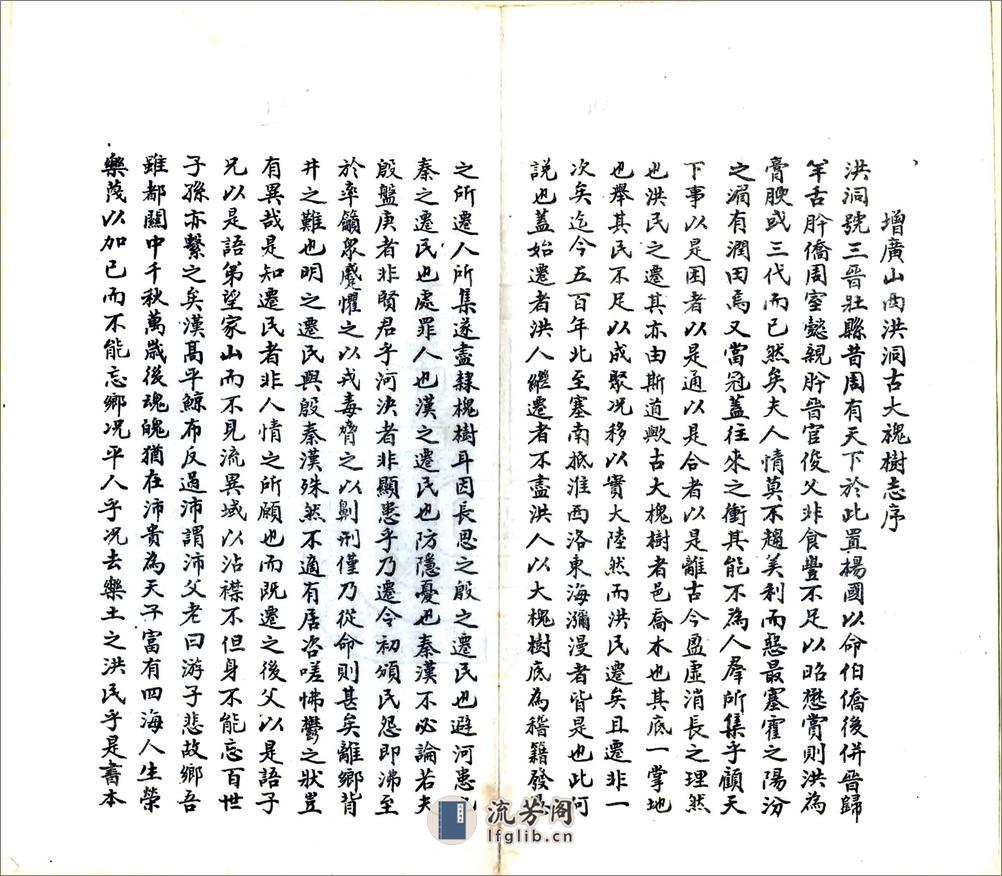 增廣山西洪洞古大槐樹志序
洪洞號三晉壯縣昔周有天下於此置楊國以命伯僑後併晉歸
羊舌肸僑周室懿親肸晉官俊父非食豐不足以昭懋賞則洪為
膏腴或三代而已然矣夫人情莫不趨美利而惡最塞霍之陽汾
之湄有潤田焉又當冠蓋往來之衝其能不為人羣所集乎顧天
下事以是困者以是通以是合者以是離古今盈虛消長之理然
也洪民之遷其亦由斯道歟古大槐樹者邑喬木也其底一掌地
也舉其民不足以成聚况移以實大陸然而洪民遷矣且遷非一
次矣迄今五百年北至塞南抵淮西洛東海瀰漫者皆是也此何
說也蓋始遷者洪人繼遷者不盡洪人以大槐樹底為稽籍發
之所遷人所集遂盡隸槐樹耳因長思之殷之遷民也避河患也
秦之遷民也處罪人也漢之遷民也防隱憂也秦漢不必論若夫
殷盤庚者非賢君乎河決者非顯患乎乃遷令初頒民怨即沸至
於率籲眾慼懼之以戎毒脅之以劓刑僅乃從命則甚矣離鄉背
井之難也明之遷民與殷秦漢殊然不適有居咨嗟怫鬱之狀豈
有異哉是知遷民者非人情之所願也而既遷之後父以是語子
兄以是語弟望家山而不見流異域以沾襟不但身不能忘百世
子孫亦繫之矣漢高平鯨布反過沛謂沛父老曰游子悲故鄉吾
雖都關中千秋萬歲後魂魄猶在沛貴為天子富有四海人生榮
樂蔑以加已而不能忘鄉况平人乎况去樂土之洪民乎是書本
流芳阁
lfglib.cn